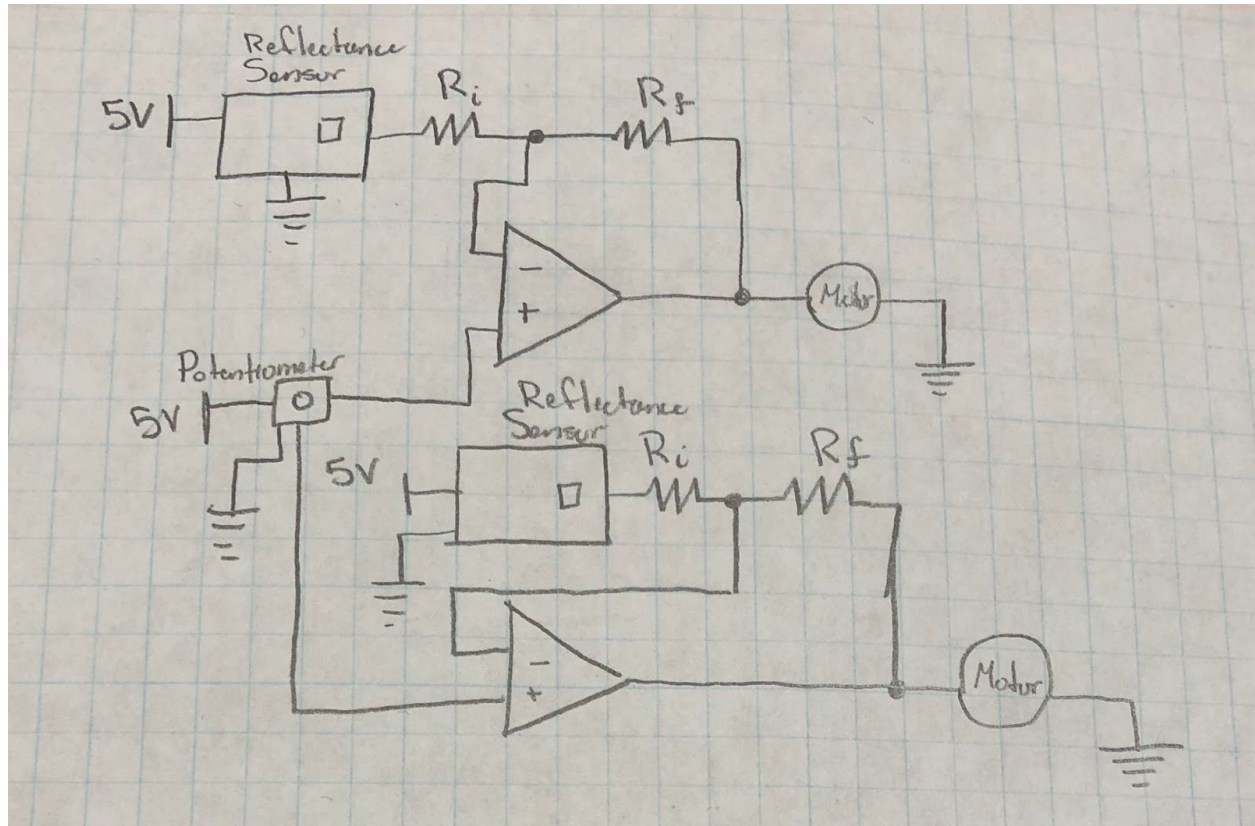 Reflectance
Sensor
5V
Ri
Rf
-
+
Motor
Potentiometer
5V
Reflectance
Sensor
5V
Ri
Rf
-
+
Motor